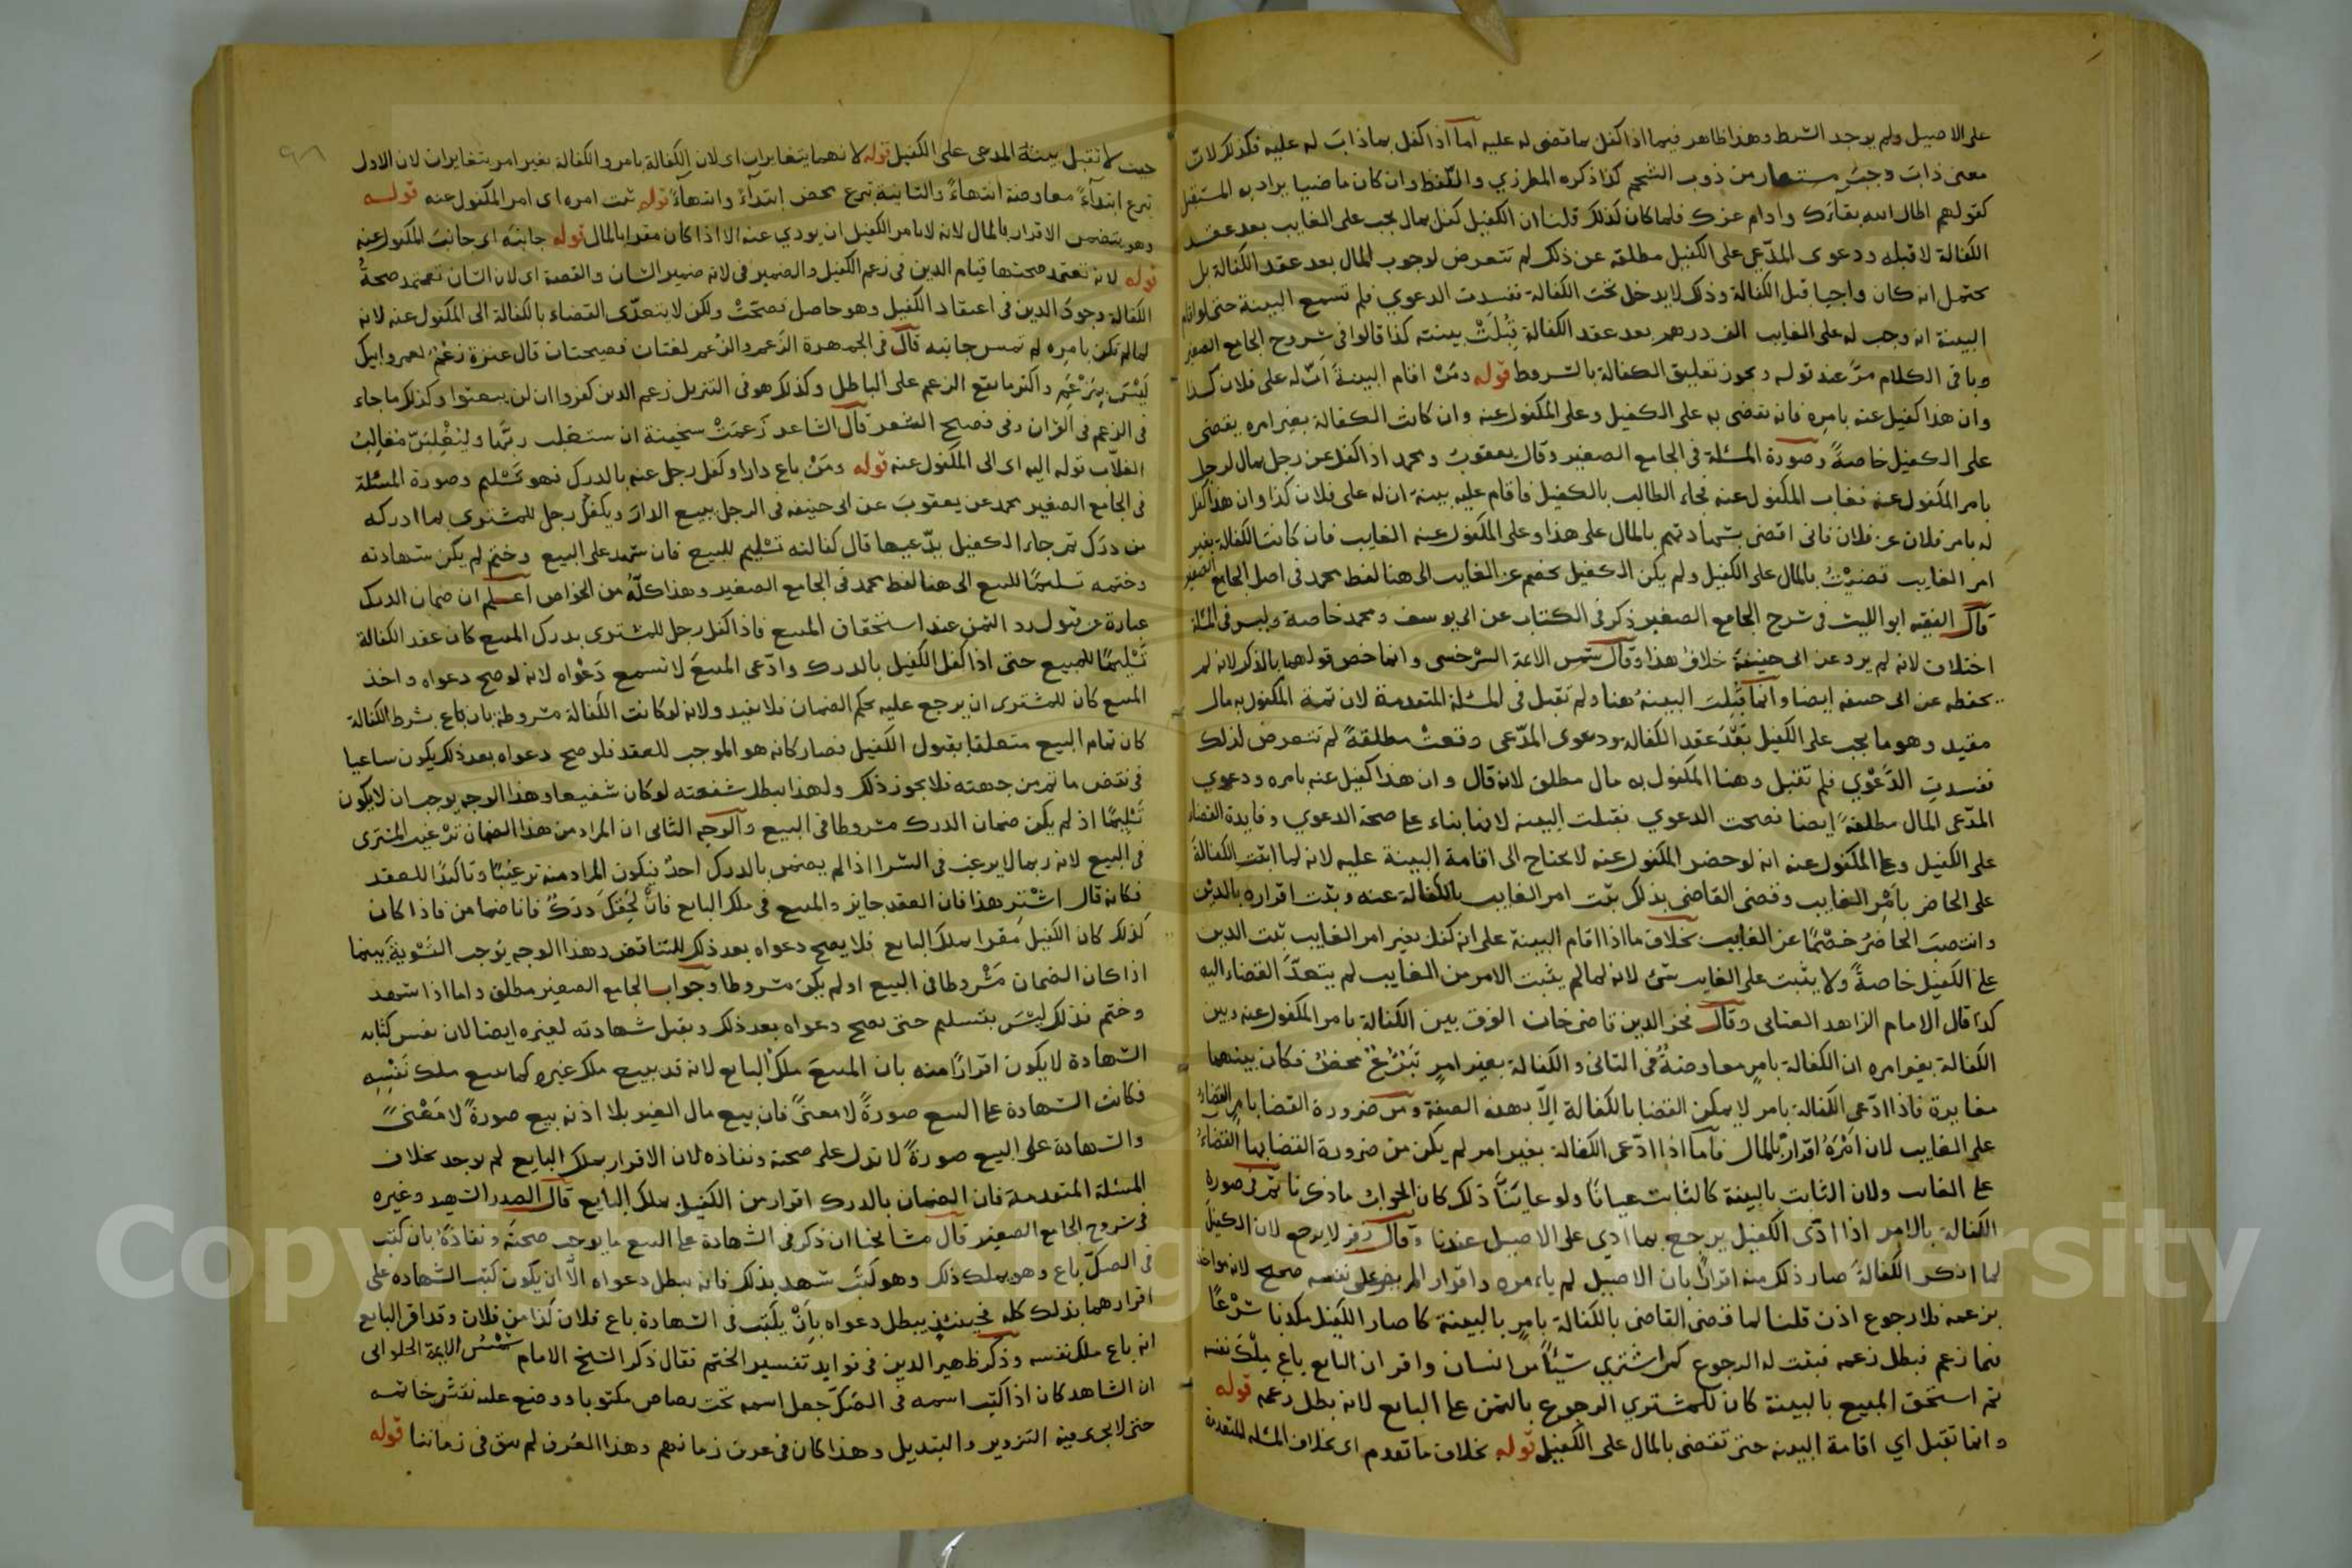 على الاصيل ولم يوجد الشرط وهذا ظاهر فيما اذا كفل بما قضى له عليه اما اذا كفل بما ذاب له عليه فكذلك لان
معنى ذاب وجب مستعار من ذوب الشحم كذا ذكره المطرزي واللفظ وان كان ماضيا يراد به المستقبل
كقولهم اطال الله بقاءك وادام عزك فلما كان كذلك قلنا ان الكفيل كفل بمال يجب على الغايب بعد عقد
الكفالة لا قبله ودعوى المدعي على الكفيل مطلقه عن ذلك لم تتعرض لوجوب المال بعد عقد الكفالة بل
يحتمل انه كان واجبا قبل الكفالة وذلك لا يدخل تحت الكفالة ففسدت الدعوي فلم تسمع البينة حتى لو اقام
البينة انه وجب له على الغايب الف درهم بعد عقد الكفالة قبلت بينته كذا قالوا في شروح الجامع الصغير
وباقي الكلام مر عند قوله ويجوز تعليق الكفالة بالشروط قوله ومن اقام البينة ان له على فلان كذا
وان هذا كفيل عنه بامره فانه يقضى به على الكفيل وعلى المكفول عنه وان كانت الكفالة بغير امره يقضى
على الكفيل خاصة وصورة المسئلة في الجامع الصغير وقال يعقوب ومحمد اذا كفل عن رجل بمال لرجل
بامر المكفول عنه فغاب المكفول عنه فجاء الطالب بالكفيل فاقام عليه بينة ان له على فلان كذا وان هذا كفل
له بامر فلان عن فلان فاني اقضي بشهادتهم بالمال على هذا وعلى المكفول عنه الغايب فان كانت الكفالة بغير
امر الغايب قضيت بالمال على الكفيل ولم يكن الكفيل بخصم عن الغايب الى هنا لفظ محمد في اصل الجامع الصغير
قال الفقيه ابو الليث في شرح الجامع الصغير ذكر في الكتاب عن ابي يوسف ومحمد خاصة وليس في المسئلة
اختلاف لانه لم يرد عن ابي حنيفة خلاف هذا وقال شمس الائمة السرخسي وانما خص قولهما بالذكر لانه لم
يحفظه عن ابي حنيفه ايضا وانما قبلت البينة هنا ولم تقبل في المسئلة المتقدمة لان ثمة المكفول به مال
مقيد وهو ما يجب على الكفيل بعد عقد الكفالة ودعوى المدعي وقعت مطلقة لم تتعرض لذلك
ففسدت الدعوي فلم تقبل وهنا المكفول به مال مطلق لانه قال وان هذا كفيل عنه بامره ودعوي
المدعى المال مطلقة ايضا فصحت الدعوي فقبلت البينه لانها بناء على صحة الدعوي وفايدة القضاء
على الكفيل وعلى المكفول عنه انه لو حضر المكفول عنه لا يحتاج الى اقامة البينة عليه لانه لما اثبت الكفالة
على الحاضر بامر الغايب وقضى القاضي بذلك يثبت امر الغايب بالكفالة عنه ويثبت اقراره بالدين
وانتصب الحاضر خصما عن الغايب بخلاف ما اذا اقام البينة على انه كفل بغير امر الغايب ثبت الدين
على الكفيل خاصة ولا يثبت على الغايب شئ لانه لما لم يثبت الامر من الغايب لم يتعد القضاء اليه
كذا قال الامام الزاهد العتابي وقال فخر الدين قاضي خان الفرق بين الكفالة بامر المكفول عنه وبين
الكفالة بغير امره ان الكفالة بامر معاوضة في الثاني والكفالة بغير امر تبرع محض فكان بينهما
مغايرة فاذا ادعى الكفالة بامر لا يمكن القضا بالكفالة الا بهذه الصفة ومن ضرورة القضا بامر القضاء
على الغايب لان امره اقرار بالمال فاما اذا ادعى الكفالة بغير امر لم يكن من ضرورة القضا بها القضاء
على الغايب ولان الثابت بالبينة كالثابت عيانا ولو عاينا ذلك كان الجواب ما ذكرنا ثم في صورة
الكفالة بالامر اذا ادى الكفيل يرجع بما ادي على الاصيل عندنا وقال زفر لا يرجع لان الكفيل
لما انكر الكفالة صار ذلك منه اقرارا بان الاصيل لم يامره واقرار المرء على نفسه صحيح لانه مواخذ
بزعمه فلا رجوع اذن قلنا لما قضى القاضي بالكفالة بامر بالبينة كا صار الكفيل مكذبا شرعا
فيما زعم فبطل زعمه فبقت له الرجوع كمن اشتري شيئا من انسان واقر ان البايع باع ملك نفسه
ثم استحق المبيع بالبينة كان للمشتري الرجوع بالثمن على البايع لانه بطل زعمه قوله
وانما تقبل اي اقامة البينه حتى تقضى بالمال على الكفيل قوله بخلاف ما تقدم اي بخلاف المسئله المتقدمة
حيث لا تقبل بينة المدعى على الكفيل قوله لانهما يتغايران اى لان الكفالة بامر والكفالة بغير امر يتغايران لان الاول
تبرع ابتداء معاوضة انتهاء والثانية تبرع محض ابتداء وانتهاء قوله ثبت امره اى امر المكفول عنه قوله
وهو يتضمن الاقرار بالمال لانه لا يامر الكفيل ان يودي عنه الا اذا كان مقرا بالمال قوله جانبه اى جانب المكفول عنه
قوله لانه تعتمد صحتها قيام الدين في زعم الكفيل والضمير في لانه ضمير الشان والقصة اى لان الشان تعتمد صحة
الكفالة وجود الدين في اعتقاد الكفيل وهو حاصل فصحت ولكن لا يتعدى القضاء بالكفالة الى المكفول عنه لانه
لما لم تكن بامره لم تمس جانبه قال في الجمهرة الزعم والزعم لغتان فصيحتان قال عنترة زعم لعمر ابيك
ليس بمزعم واكثر ما يقع الزعم على الباطل وكذلك هو في التنزيل زعم الذين كفروا ان لن يبعثوا وكذلك ما جاء
في الزعم في القران وفى فصيح الشعر قال الشاعر زعمت سخينة ان ستغلب ربها وليغلبن مغالب
الغلاب قوله اليه اى الى المكفول عنه قوله ومن باع دارا وكفل رجل عنه بالدرك فهو تسليم وصورة المسئلة
في الجامع الصغير محمد عن يعقوب عن ابى حنيفه في الرجل يبيع الدار ويكفل رجل للمشترى بما ادركه
من درك ثم جاء الكفيل يدعيها قال كفالته تسليم للبيع فان شهد على البيع وختم لم يكن شهادته
وختمه تسليما للبيع الى هنا لفظ محمد في الجامع الصغير وهذا كله من الخواص اعلم ان ضمان الدرك
عبارة عن قبول رد الثمن عند استحقاق المبيع فاذا كفل رجل للمشترى بدرك المبيع كان عقد الكفالة
تسليما للمبيع حتى اذا كفل الكفيل بالدرك وادعى المبيع لا تسمع دعواه لانه لو صح دعواه واخذ
المبيع كان للمشترى ان يرجع عليه بحكم الضمان فلا يفيد ولانه لو كانت الكفالة مشروطة بان باع بشرط الكفالة
كان تمام البيع متعلقا بقبول الكفيل فصار كانه هو الموجب للعقد فلو صح دعواه بعد ذلك يكون ساعيا
في نقض ما تم من جهته فلا يجوز ذلك ولهذا يبطل شفعته لو كان شفيعا وهذا الوجه يوجب ان لا يكون
تسليما اذ لم يكن ضمان الدرك مشروطا في البيع والوجه الثانى ان المراد من هذا الضمان ترغيب المشترى
في البيع لانه ربما لا يرغب في الشرا اذا لم يضمن بالدرك احد فيكون المراد منه ترغيبا وتاكيدا للعقد
فكانه قال اشتر هذا فان العقد جايز والمبيع في ملك البايع فان لحقك درك فانا ضامن فاذا كان
كذلك كان الكفيل مقرا بملك البايع فلا يصح دعواه بعد ذلك للتناقض وهذا الوجه يوجب التسوية بينما
اذا كان الضمان مشروطا في البيع او لم يكن مشروطا وجواب الجامع الصغير مطلق واما اذا شهد
وختم فذلك ليس بتسليم حتى يصح دعواه بعد ذلك ويقبل شهادته لغيره ايضا لان نفس كتابه
الشهادة لا يكون اقرارا منه بان المبيع ملك البايع لانه قد يبيع ملك غيره كما يبيع ملك نفسه
فكانت الشهادة على البيع صورة لا معنى فان بيع مال الغير بلا اذنه بيع صورة لا معنى
والشهادة على البيع صورة لا تدل على صحته ونفاذه لان الاقرار بملك البايع لم يوجد بخلاف
المسئلة المتقدمة فان الضمان بالدرك اقرار من الكفيل بملك البايع قال الصدر الشهيد وغيره
في شروح الجامع الصغير قال مشايخنا ان ذكر في الشهادة على البيع ما يوجب صحته ونفاذه بان كتب
في الصك باع وهو يملك ذلك وهو كتب شهد بذلك فانه يبطل دعواه الا ان يكون كتب الشهاده على
اقرارهما بذلك كله فحينئذ يبطل دعواه بان يكتب في الشهادة باع فلان كذا من فلان وقد اقر البايع
انه باع ملك نفسه وذكر ظهير الدين في فوايد تفسير الختم فقال ذكر الشيخ الامام شمس الايمة الحلوانى
ان الشاهد كان اذا كتب اسمه في الصك جعل اسمه تحت رصاص مكتوبا ووضع عليه نقش خاتمه
حتى لا يجرى فيه التزوير والتبديل وهذا كان في عرف زمانهم وهذا العرف لم يبق في زماننا قوله
Copyright © King Saud University